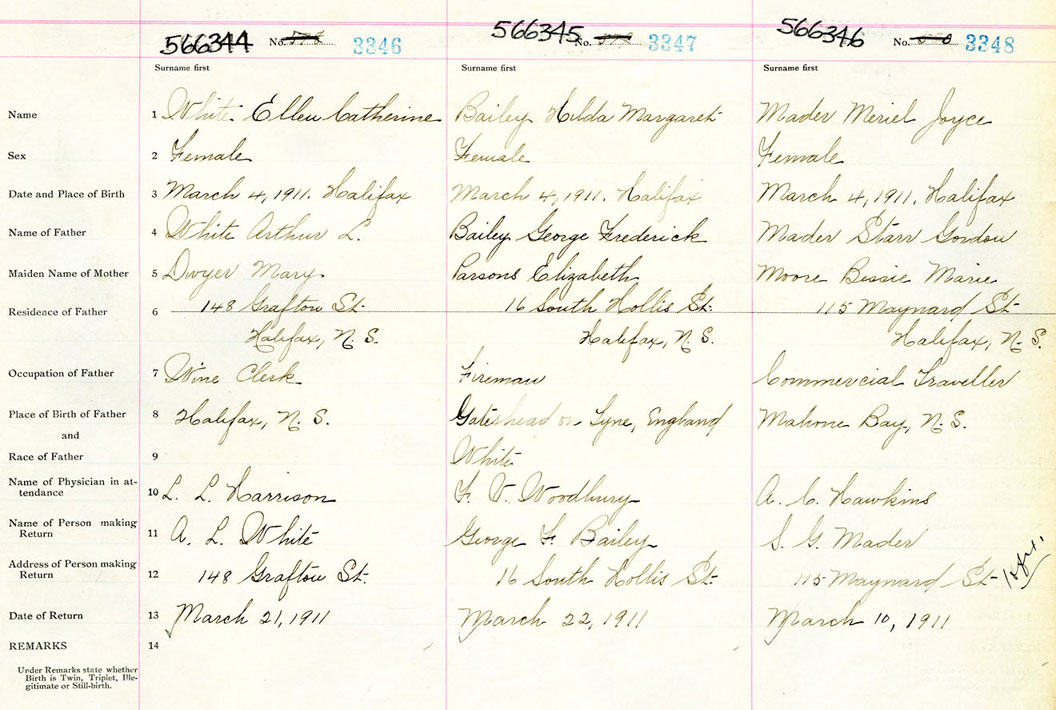 566344 No. 3346 566345 No. 3347 566346 No. 3348
Surname first Surname first Surname first
Name 1 White Ellen Catherine Bailey Hilda Margaret Mader Meriel Joyce
Sex 2 Female Female Female
Date and Place of Birth 3 March 4, 1911. Halifax March 4, 1911. Halifax March 4, 1911. Halifax
Name of Father 4 White Arthur L. Bailey George Frederick Mader Starr Gordon
Maiden Name of Mother 5 Dwyer Mary Parsons Elizabeth Moore Bessie Marie
Residence of Father 6 148 Grafton St. 16 South Hollis St. 115 Maynard St.
Halifax, N. S. Halifax, N. S. Halifax, N. S.
Occupation of Father 7 Wine Clerk Fireman Commercial Traveller
Place of Birth of Father 8 Halifax, N. S. Gateshead on Tyne, England Mahone Bay, N. S.
and
Race of Father 9 White
Name of Physician in at-
tendance 10 L. L. Harrison F. V. Woodbury A. C. Hawkins
Name of Person making
Return 11 A. L. White George F. Bailey S. G. Mader
Address of Person making
Return 12 148 Grafton St. 16 South Hollis St. 115 Maynard St.
Date of Return 13 March 21, 1911 March 22, 1911 March 10, 1911
REMARKS 14
Under Remarks state whether
Birth is Twin, Triplet, Ille-
gitimate or Still-birth.